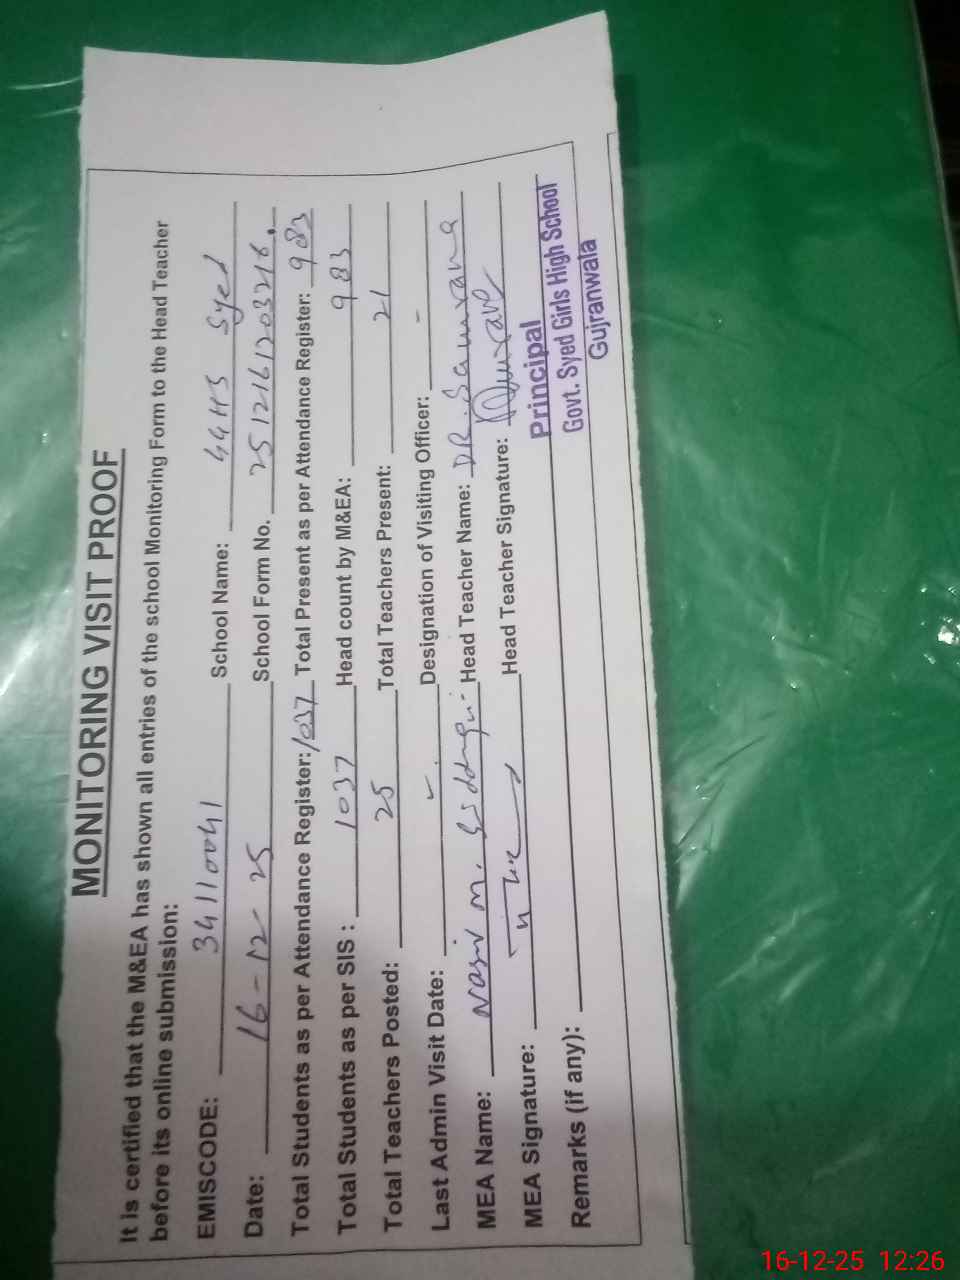 MONITORING VISIT PROOF
It is certified that the M&EA has shown all entries of the school Monitoring Form to the Head Teacher
before its online submission:
EMISCODE: 34110041 School Name: GGHS Syed
Date: 16-12-25 School Form No. 2512161203216.
Total Students as per Attendance Register: 1037 Total Present as per Attendance Register: 983
Total Students as per SIS : 1037 Head count by M&EA: 983
Total Teachers Posted: 25 Total Teachers Present: 21
Last Admin Visit Date: - Designation of Visiting Officer: -
MEA Name: Nasir M. Head Teacher Name: DR. Samrana
MEA Signature: Head Teacher Signature:
Remarks (if any):
Principal
Govt. Syed Girls High School
Gujranwala
16-12-25 12:26